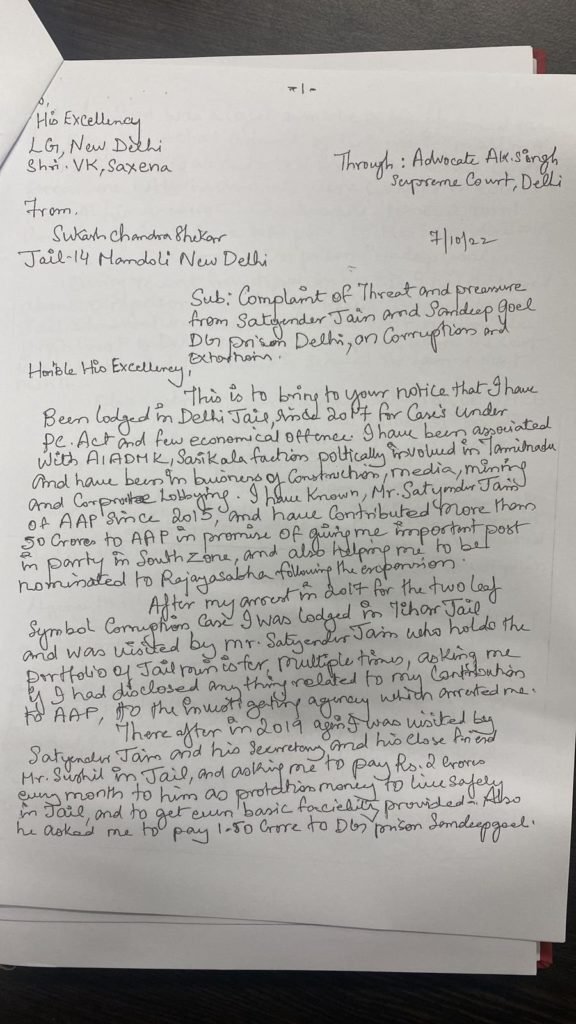 -1-
His Excellency
LG, New Delhi
Shri. VK, Saxena
Through: Advocate AK. Singh
Supreme Court, Delhi
From,
Sukash Chandra Shekar
Jail-14 Mandoli New Delhi
7/10/22
Sub: Complaint of Threat and preassure
from Satyender Jain and Sandeep Goel
DG prison Delhi, on Corruption and
Extortion.
Hon'ble His Excellency,
This is to bring to your notice that I have
Been lodged in Delhi Jail, since 2017 for Case's under
PC. Act and few economical offence. I have been associated
with AIADMK, Sasikala faction politically involved in Tamilnadu
and have been in business of Construction, media, mining
and Corporate Lobbying. I have Known, Mr. Satyender Jain
of AAP since 2015, and have Contributed more than
50 Crores to AAP in promise of giving me important post
in party in South zone, and also helping me to be
nominated to Rajayasabha following the expansion.
After my arrest in 2017 for the two leaf
Symbol Corruption Case I was lodged in Tihar Jail
and was visited by mr. Satyender Jain who holds the
portfolio of Jail minister, multiple times, asking me
if I had disclosed any thing related to my Contribution
to AAP, to the investigating agency which arrested me.
There after in 2019 again I was visited by
Satyender Jain and his Secretary and his close friend
Mr. Sushil in Jail, and asking me to pay Rs. 2 Crores
every month to him as protection money to live safely
in Jail, and to get even basic facility provided. Also
he asked me to pay 1.50 Crore to DG prison Sandeep goel.